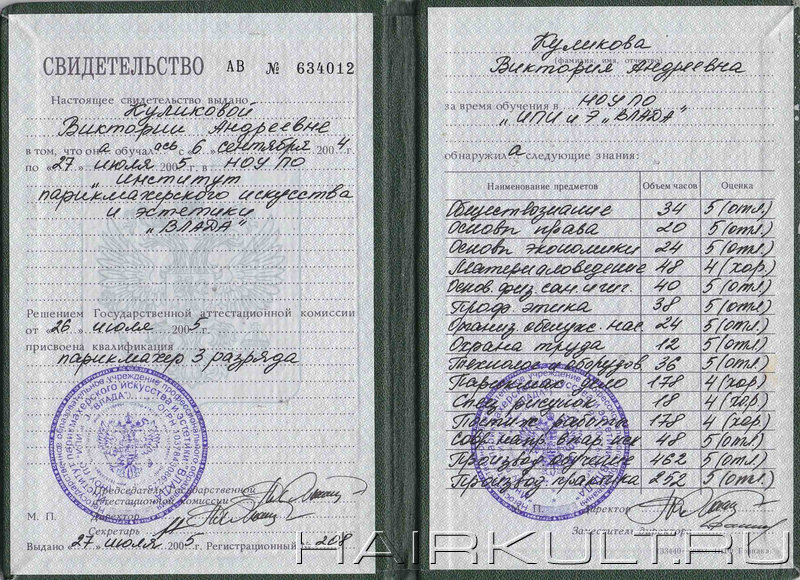 СВИДЕТЕЛЬСТВО АВ № 634012
Настоящее свидетельство выдано
Куликовой
Виктории Андреевне
в том, что она обучалась с «6» сентября 2004 г.
по «27» июля 2005 г. в НОУ ПО
„Институт
парикмахерского искусства
и эстетики
„ВЛАДА"
Решением Государственной аттестационной комиссии
от «26» июля 2005 г.
присвоена квалификация
парикмахер 3 разряда
Председатель Государственной
аттестационной комиссии
М. П. Директор
Секретарь
Выдано «27» июля 2005 г. Регистрационный № 208
Куликова
(фамилия, имя, отчество)
Виктория Андреевна
за время обучения в НОУ ПО
„ИПИ и Э „ВЛАДА"
обнаружила следующие знания:
Наименование предметов Объем часов Оценка
Обществознание 34 5 (отл.)
Основы права 20 5 (отл.)
Основы экономики 24 5 (отл.)
Материаловедение 48 4 (хор.)
Основ. физ. сан. и гиг. 40 5 (отл.)
Проф. этика 38 5 (отл.)
Организ. обслуж. нас. 24 5 (отл.)
Охрана труда 12 5 (отл.)
Технолог. и оборудов. 36 5 (отл.)
Парикмах. дело 178 4 (хор.)
Спец. рисунок 18 4 (хор.)
Постиж. работы 178 4 (хор.)
Совр. напр. в пар. иск. 48 5 (отл.)
Производ. обучение 462 5 (отл.)
Производ. практика 252 5 (отл.)
П. Директор
Заместитель Директора
HAIRKULT.RU